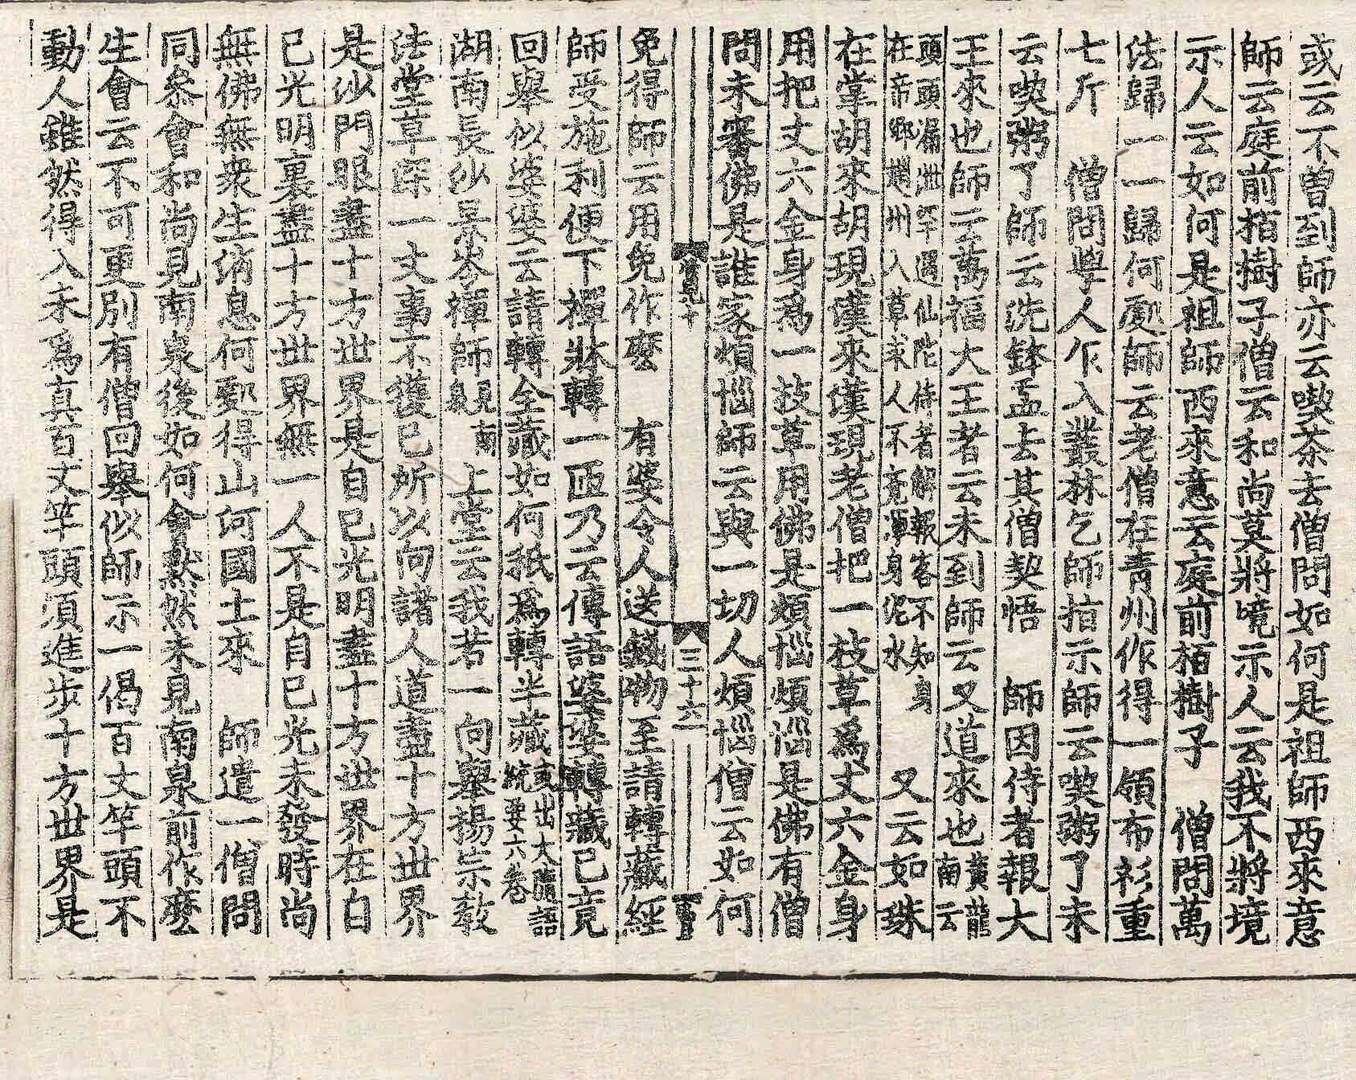 或云不曾到師亦云喫茶去僧問如何是祖師西來意
師云庭前栢樹子僧云和尚莫將境示人云我不將境
示人云如何是祖師西來意云庭前栢樹子　僧問萬
法歸一一歸何處師云老僧在青州作得一領布衫重
七斤　僧問學人乍入叢林乞師指示師云喫粥了未
云喫粥了師云洗鉢盂去其僧契悟　師因侍者報大
王來也師云萬福大王者云未到師云又道來也黃龍南云
頭頭漏泄罕遇仙陀侍者解報客不知身在帝鄕趙州入草求人不覺渾身泥水　又云如珠
在掌胡來胡現漢來漢現老僧把一枝草爲丈六金身
用把丈六金身爲一枝草用佛是煩惱煩惱是佛有僧
問未審佛是誰家煩惱師云與一切人煩惱僧云如何
三十六
免得師云用免作麼　有婆令人送錢物至請轉藏經
師受施利便下禪牀轉一匝乃云傳語婆婆轉藏已竟
回擧似婆婆云請轉全藏如何秖爲轉半藏或出大隨語統要六卷
湖南長沙景岑禪師見南泉　上堂云我若一向擧揚宗敎
法堂草深一丈事不獲已所以向諸人道盡十方世界
是沙門眼盡十方世界是自己光明盡十方世界在自
己光明裏盡十方世界無一人不是自己光未發時尚
無佛無衆生消息何處得山河國土來　師遣一僧問
同叅會和尚見南泉後如何會黙然未見南泉前作麼
生會云不可更別有僧回擧似師示一偈百丈竿頭不
動人雖然得入未爲真百丈竿頭須進步十方世界是